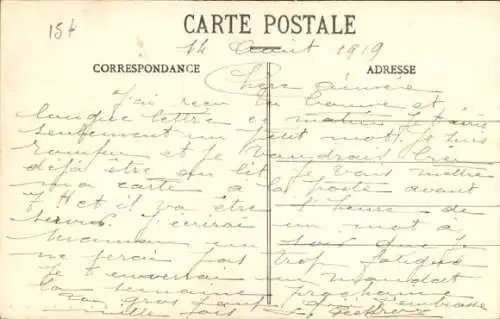 15t
CARTE POSTALE
14 Aout 1919
CORRESPONDANCE
ADRESSE
Chere
J'ai reçu ta bonne et
longue lettre ce matin
seulement un petit mot. Je suis
et je voudrais
déjà être au lit. Je vais mettre
ma carte à la poste avant
7 H et il va être l'heure de
J'écrirai un mot à
un soir que je
ne serai pas trop fatigué
Je t'enverrai un mandat
la semaine prochaine
Ton gros qui t'embrasse
mille fois